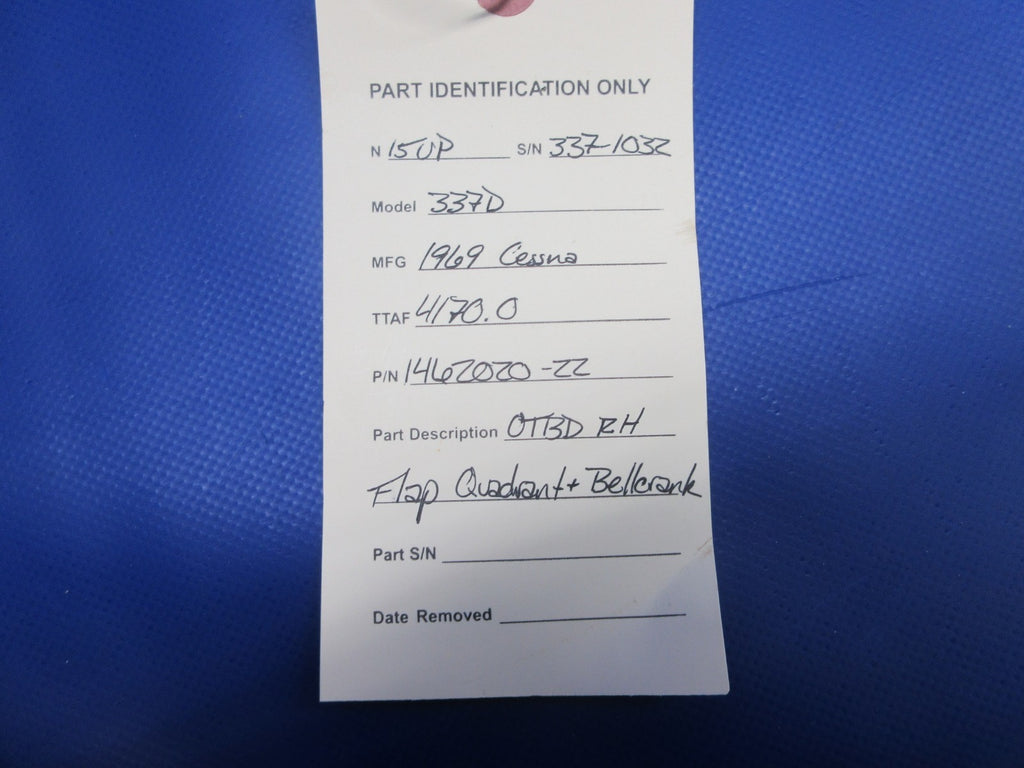 PART IDENTIFICATION ONLY
N 15UP S/N 337-1032
Model 337D
MFG 1969 Cessna
TTAF 4170.0
P/N 1462020-22
Part Description OTBD RH
Flap Quadrant + Bellcrank
Part S/N
Date Removed